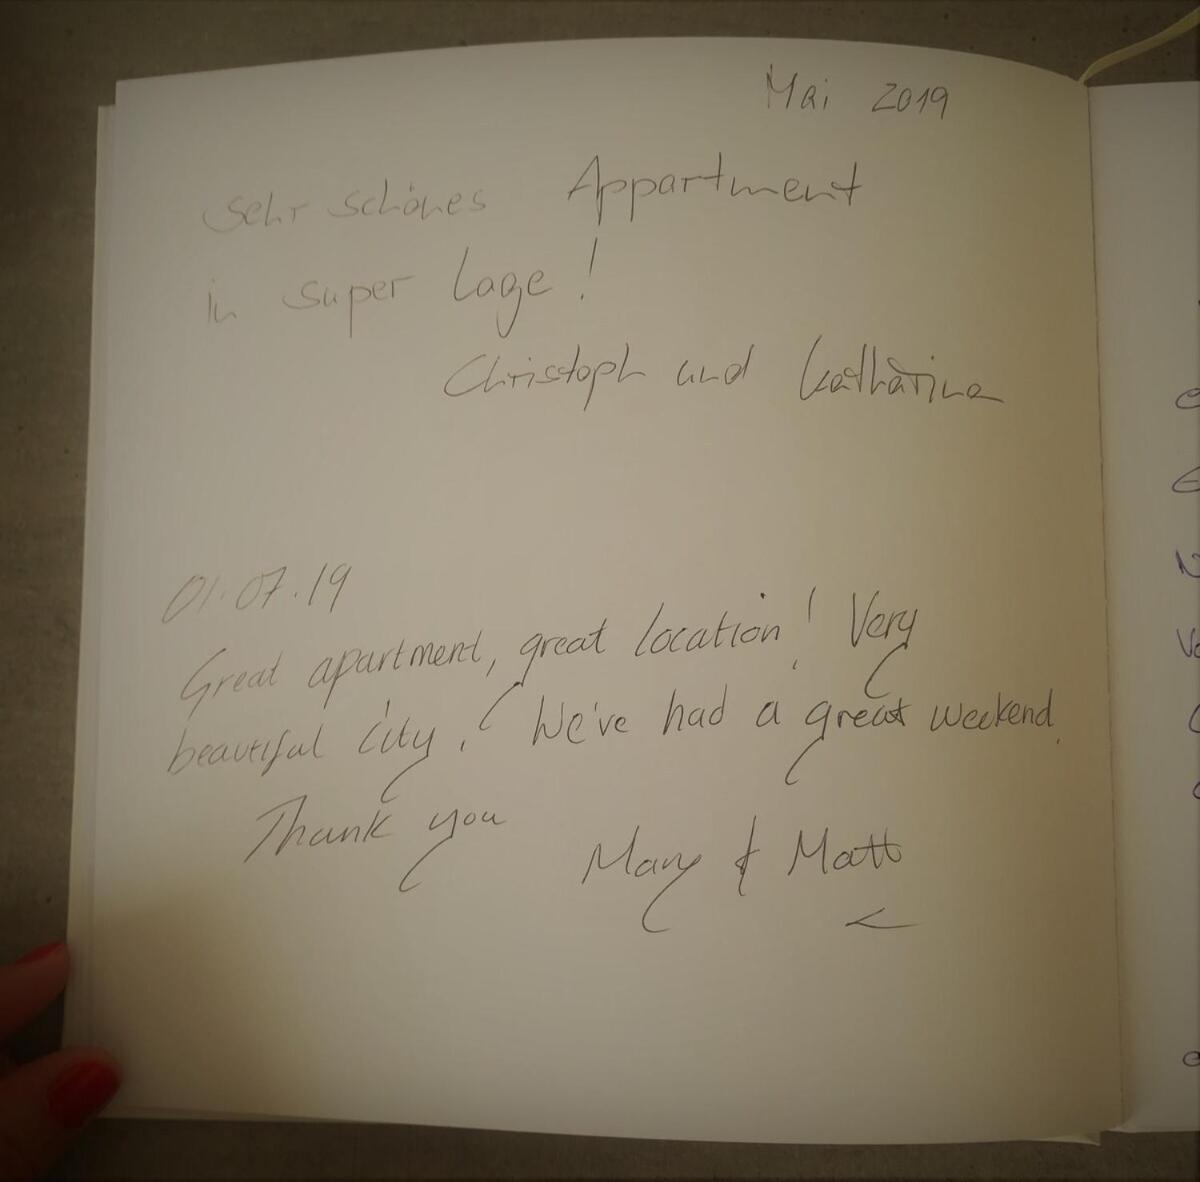 Mai 2019
Sehr schönes Appartment
in super Lage!
Christoph und Katharina
01.07.19
Great apartment, great location! Very
beautiful city. We've had a great weekend.
Thank you
Mary & Matt